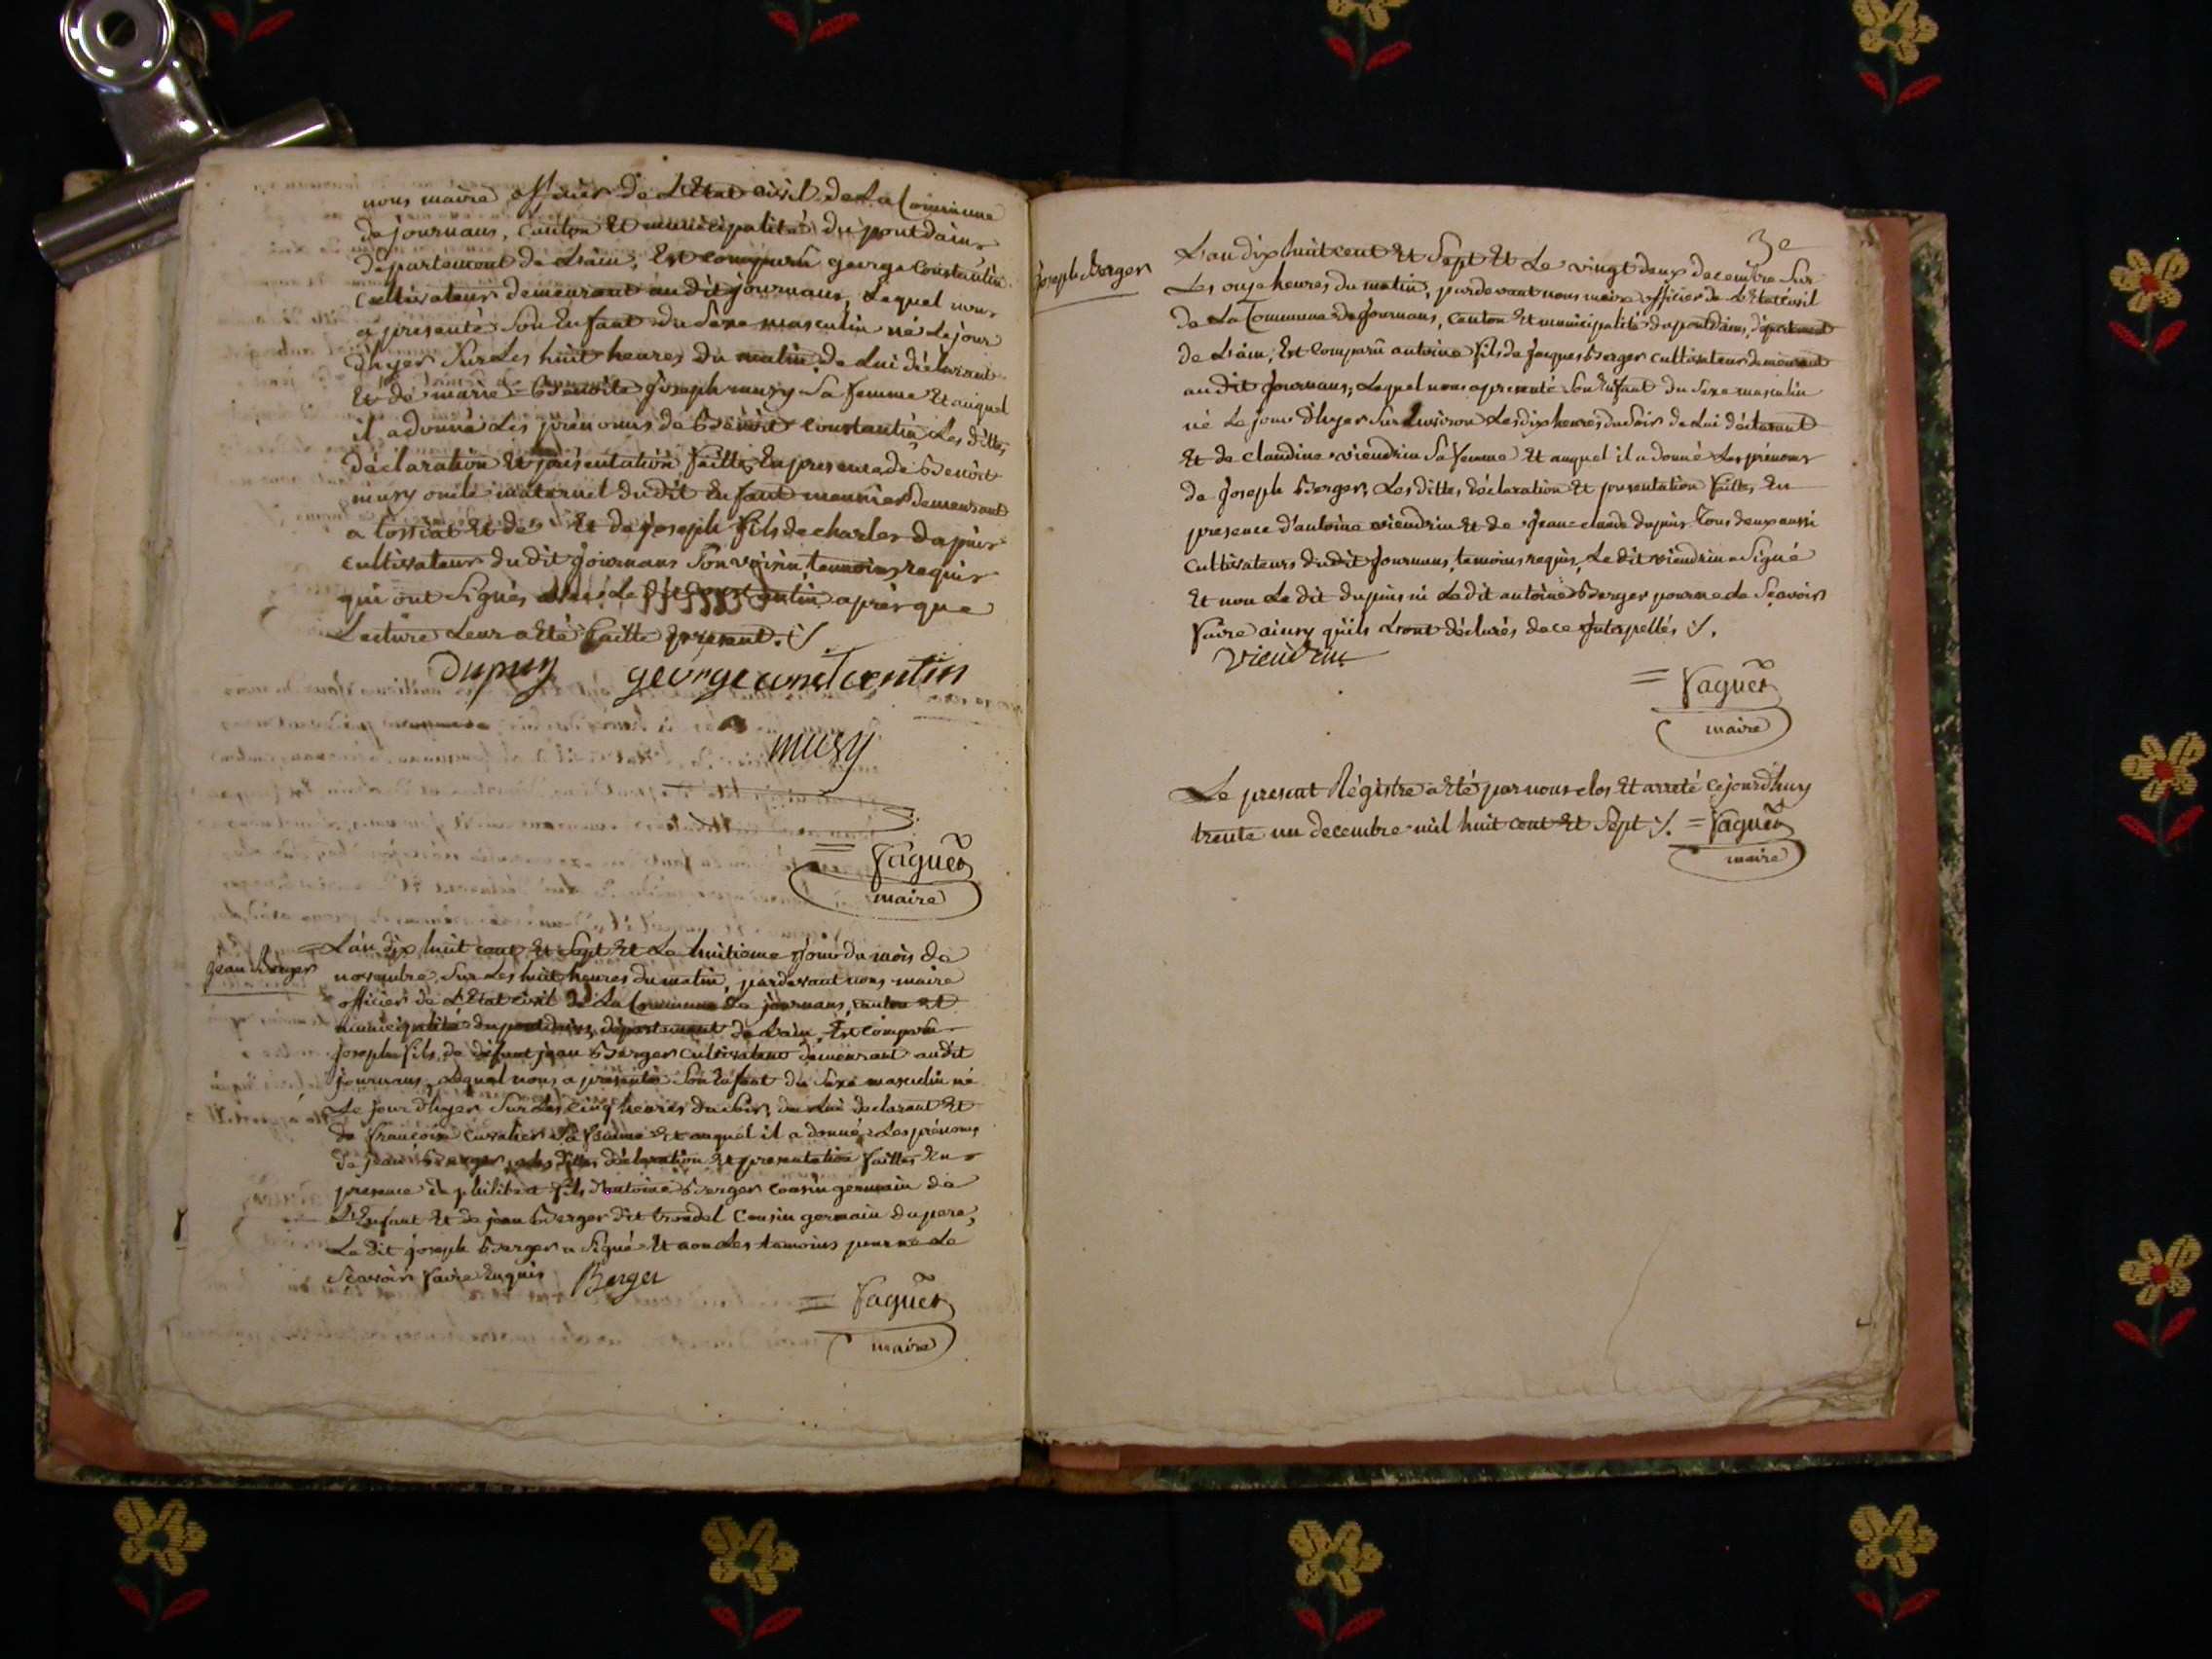 nous maire officier de L'Etat civil de La Commune
de journans, Canton Et municipalité du pontdains
département de L'ain, Est comparu george Constantin
Cultivateur demeurant au dit journans, Lequel nous
a presenté Son Enfant du Sexe masculin né Le jour
d'hyer Sur Les huit heures du matin, de Lui déclarant
Et de marie Benoite Joseph musy Sa femme Et auquel
il a donné Les prénoms de Benoit Constantin, Les dittes
déclaration Et présentation faittes En presence de Benoit
musy oncle maternel du dit Enfant meunier demeurant
a tossiat Et de Et de joseph fils de charles dupuis
cultivateur du dit Journans Son voisin, temoins requis
qui ont Signés avec Le dit Constantin après que
Lecture Leur a Eté faitte presents ./
dupuy george constentin
musy
= Vaguer
maire
Jean Berger
= L'an dix huit cent Et Sept Et Le huitieme jour du mois de
novembre, Sur Les huit heures du matin, pardevant nous maire
officier de L'Etat civil de La Commune de journans, canton Et
municipalité du pontdains, département de L'ain, Est Comparu
joseph fils de défunt jean Berger cultivateur demeurant au dit
journans, Lequel nous a presenté Son Enfant du Sexe masculin né
Le jour d'hyer Sur Les cinq heures du Soir, de Lui declarant Et
de françoise Sa femme Et auquel il a donné Les prénoms
de jean Berger, Les dittes déclaration Et presentation faittes En
presence de philibert fils d'antoine Berger cousin germain de
L'Enfant Et de jean Berger dit Cousin germain du pere,
Le dit joseph Berger a Signé Et non Les temoins pour ne Le
Sçavoir faire Enquis Berger
= Vaguer
maire
3e
joseph Berger
L'an dix huit cent Et Sept Et Le vingt deux decembre Sur
Les onze heures du matin, pardevant nous maire officier de L'Etat Civil
de La Commune de Journans, Canton Et municipalité du pontdains, département
de L'ain, Est Comparu antoine fils de Jacques Berger cultivateur demeurant
au dit Journans, Lequel nous a presenté Son Enfant du Sexe masculin
né Le jour d'hyer Sur Environ Les dix heures du Soir de Lui déclarant
Et de claudine viendrin Sa femme Et auquel il a donné Les prénoms
de Joseph Berger, Les dittes déclaration Et presentation faittes En
presence d'antoine viendrin Et de Jean=claude dupuis Tous deux aussi
cultivateurs du dit Journans, temoins requis, Le dit viendrin a Signé
Et non Le dit dupuis ni Le dit antoine Berger pour ne Le Sçavoir
faire ainsy qu'ils L'ont déclarés de ce Interpellés ./.
viendrin
= Vaguer
maire
Le present Régistre a Eté par nous clos Et arreté Cejourd'huy
trente un decembre mil huit cent Et Sept ./. = Vaguer
maire